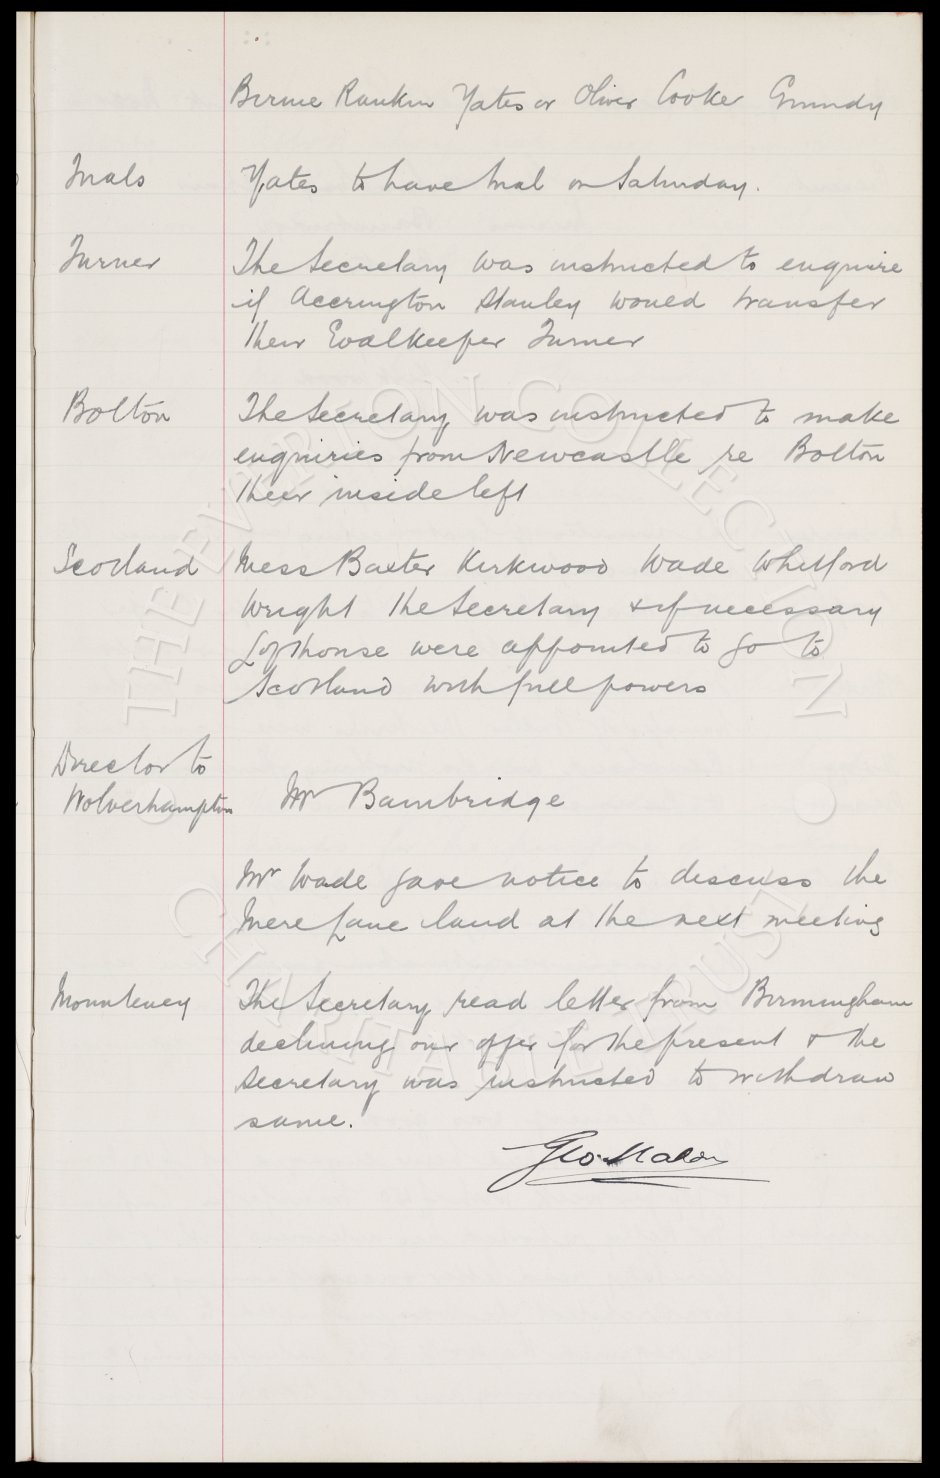 Birnie Rankin Yates or Oliver Cooke Grundy
Trials Yates to have trial on Saturday.
Turner The Secretary was instructed to enquire
if Accrington Stanley would transfer
their Goalkeeper Turner
Bolton The Secretary was instructed to make
enquiries from Newcastle re Bolton
their inside left
Scotland Mess Baxter Kirkwood Wade Whitford
Wright the Secretary & if necessary
Lofthouse were appointed to go to
Scotland with full powers
Director to
Wolverhampton Mr Bainbridge
Mr Wade gave notice to discuss the
Mere Lane land at the next meeting
Mounteney The Secretary read letter from Birmingham
declining our offer for the present & the
Secretary was instructed to withdraw
same.
Geo. Mahon
© THE EVERTON COLLECTION ©
CHARITABLE TRUST